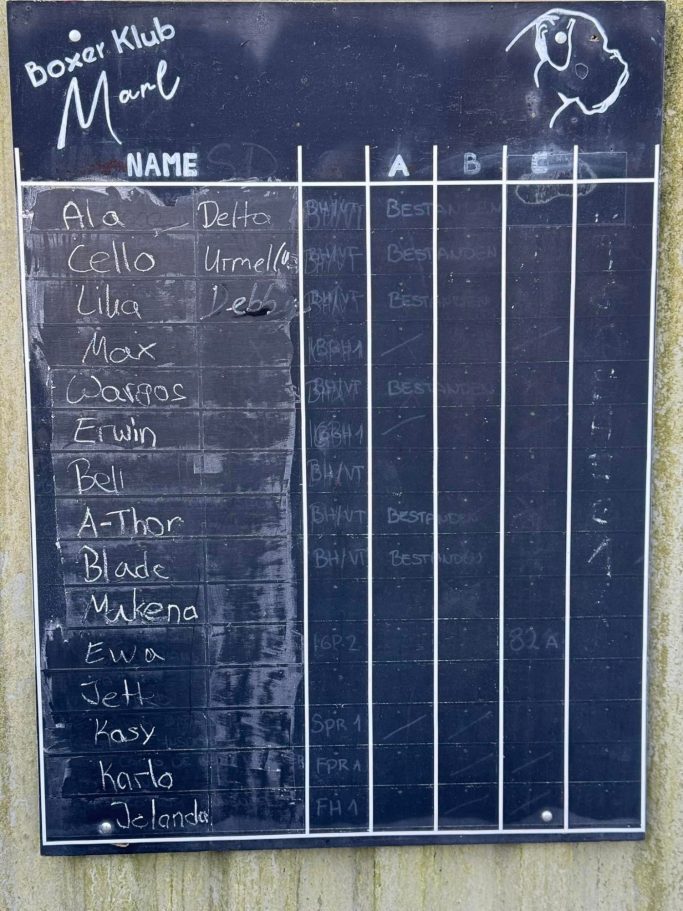 Boxer Klub
Marl
NAME A B C
Ala Delta BH/VT BESTANDEN
Cello Urmel BH/VT BESTANDEN
Lika BH/VT BESTANDEN
Max
Wargos BH/VT BESTANDEN
Erwin
Bell BH/VT
A-Thor BH/VT BESTANDEN
Blade BH/VT BESTANDEN
Makena
Ewa IGP.2 82 A
Jett
Kasy Spr 1
Karlo FPR 1
Jelanda FH 1